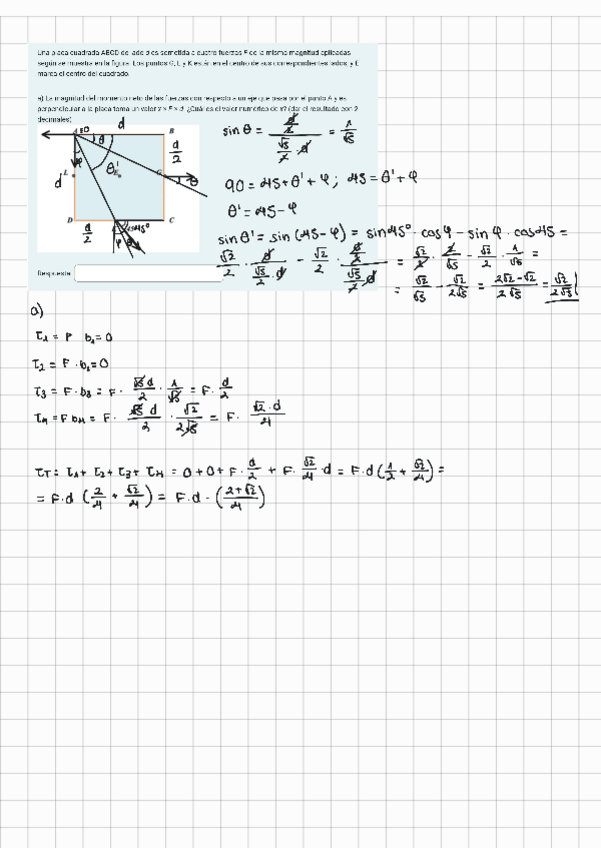 Una placa cuadrada ABCD de lado d es sometida a cuatro fuerzas F de la misma magnitud aplicadas
según se muestra en la figura. Los puntos G, L y K están en el centro de sus correspondientes lados y E
marca el centro del cuadrado.
a) La magnitud del momento neto de las fuerzas con respecto a un eje que pasa por el punto A y es
perpendicular a la placa toma un valor r × F × d. ¿Cuál es el valor numérico de r? (dar el resultado con 2
decimales)
d
B
θ
d/2
φ
θ'
L
E
G
θ
d
D
C
45°
d/2
φ
Respuesta:
sin θ = (d/2)/(√5/2 · d) = 1/√5
90 = 45 + θ' + φ ; 45 = θ' + φ
θ' = 45 - φ
sin θ' = sin (45 - φ) = sin 45° · cos φ - sin φ · cos 45 =
√2/2 · d/(√5/2 · d) - √2/2 · (d/2)/(√5/2 · d) = √2/2 · 2/√5 - √2/2 · 1/√5 =
= √2/√5 - √2/2√5 = (2√2 - √2)/2√5 = √2/2√5
a)
τ1 = F b1 = 0
τ2 = F · b2 = 0
τ3 = F · b3 = F · √5 d/2 · 1/√5 = F · d/2
τ4 = F b4 = F · √5 d/2 · √2/2√5 = F · √2 · d/4
τT = τ1 + τ2 + τ3 + τ4 = 0 + 0 + F · d/2 + F · √2/4 · d = F · d (1/2 + √2/4) =
= F · d (2/4 + √2/4) = F · d · ((2 + √2)/4)